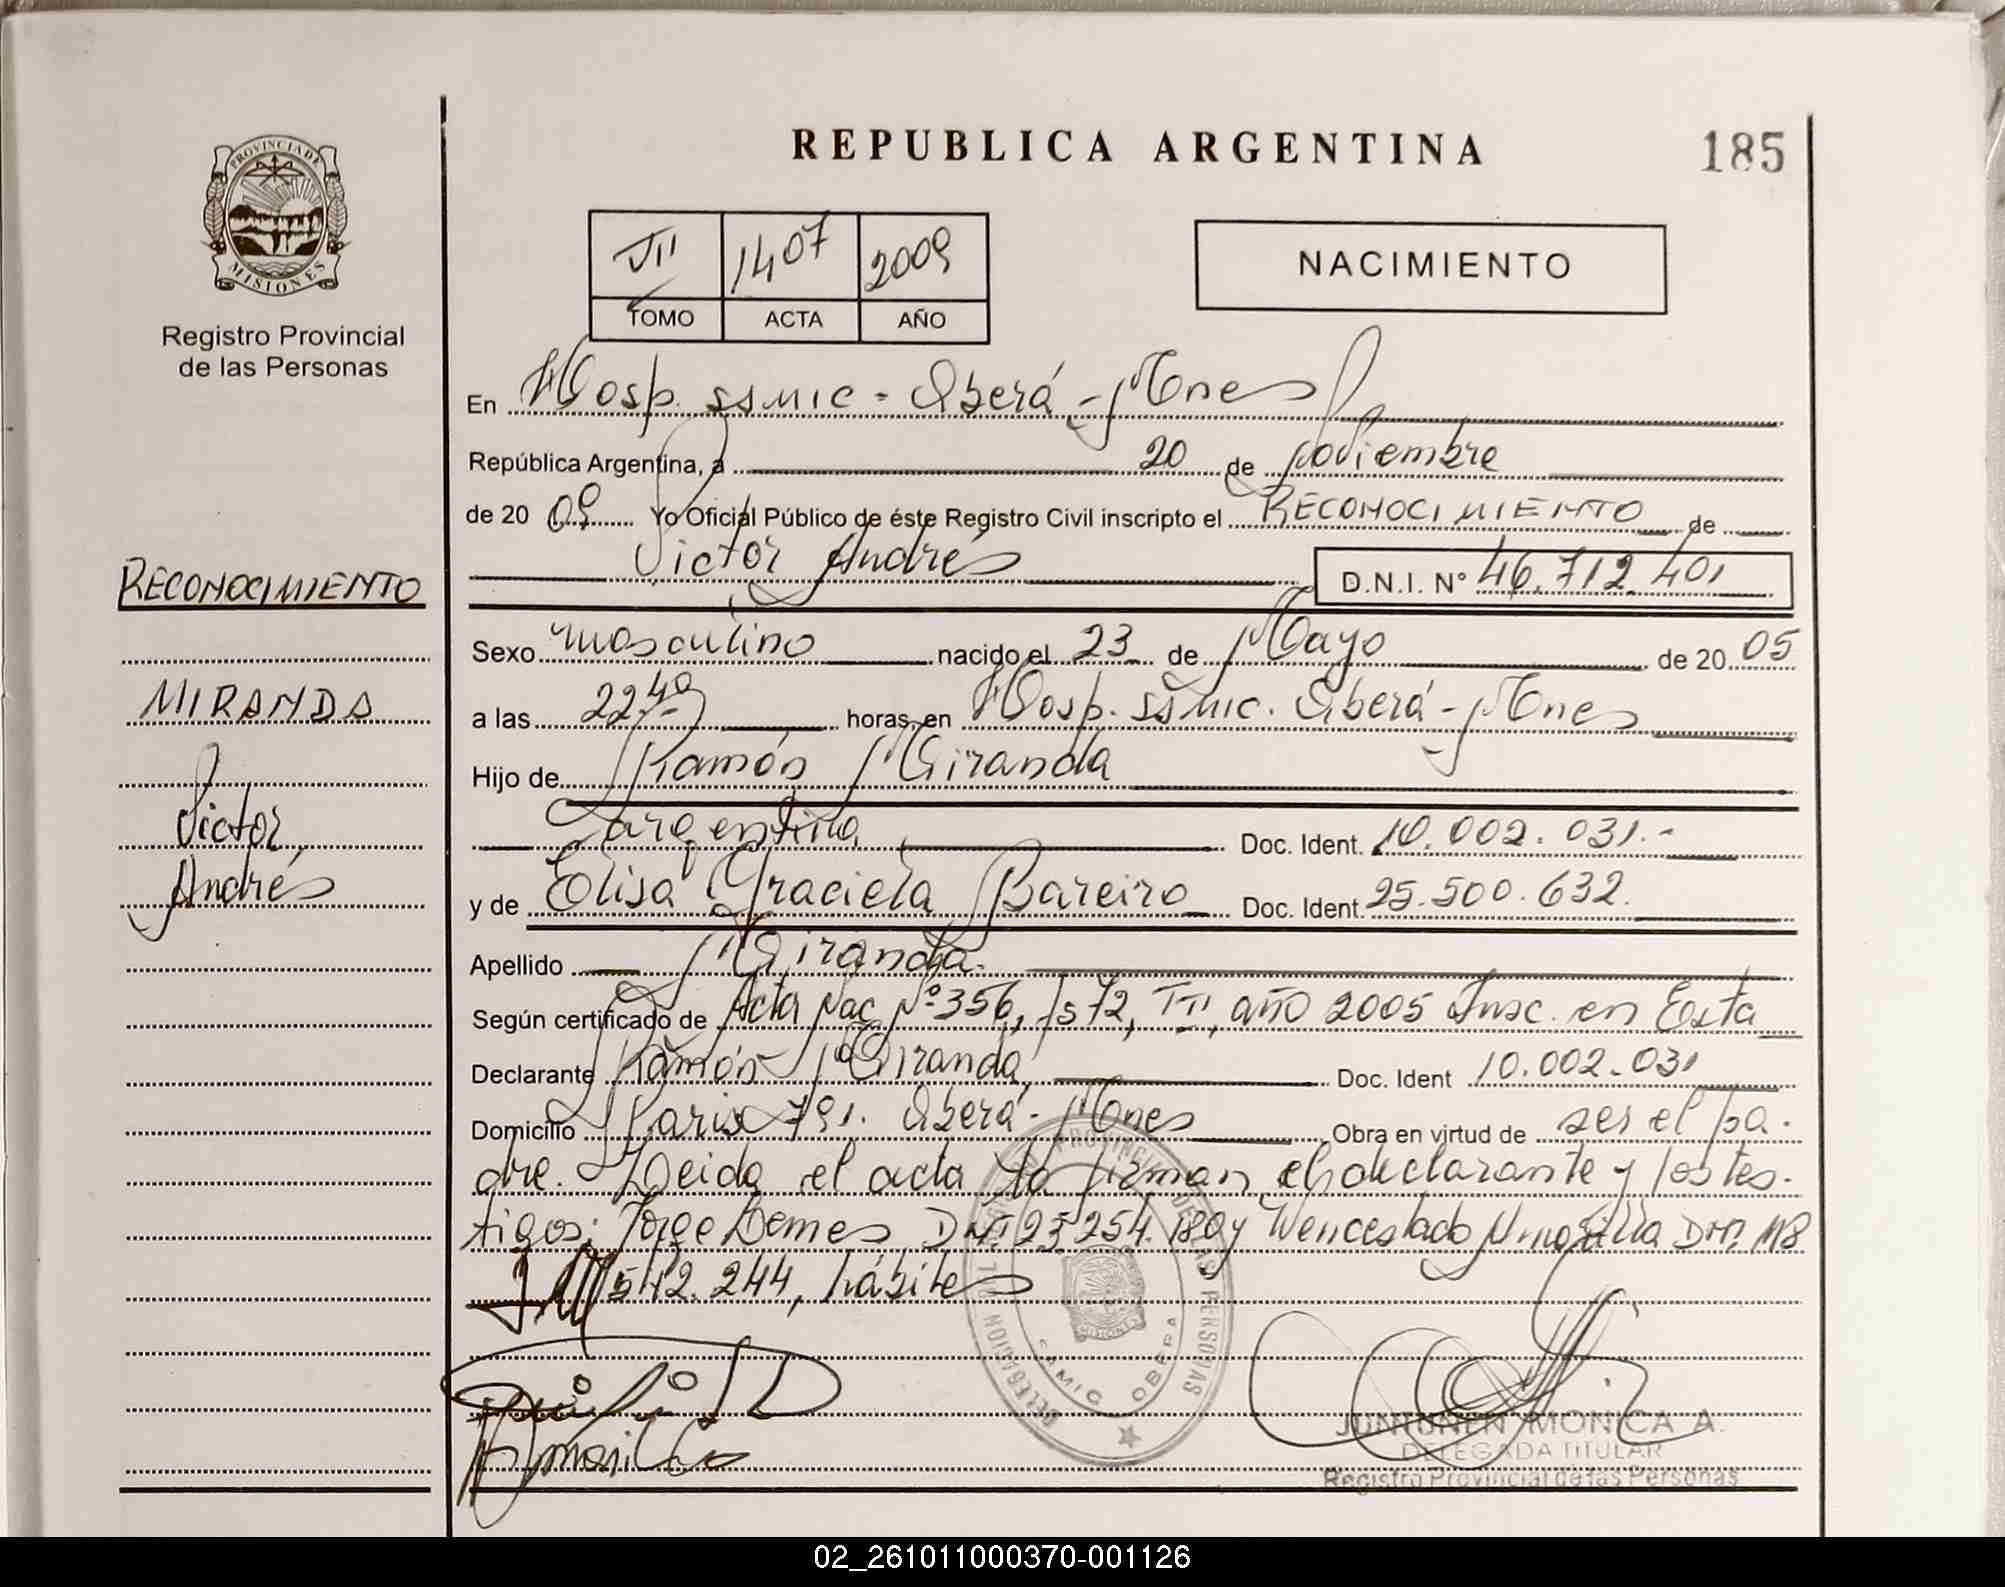 REPUBLICA ARGENTINA
185
PROVINCIA DE
MISIONES
Registro Provincial
de las Personas
TII 1407 2009
TOMO ACTA AÑO
NACIMIENTO
En Hosp. SSMIC - Oberá - Mnes
República Argentina, a 20 de Noviembre
de 20 09 Yo Oficial Público de éste Registro Civil inscripto el RECONOCIMIENTO de
Victor Andrés D.N.I. N° 46.712.401
RECONOCIMIENTO
MIRANDA
Victor
Andrés
Sexo masculino nacido el 23 de Mayo de 20 05
a las 22,40 horas, en Hosp. SSMIC. Oberá - Mnes
Hijo de Ramón Miranda
argentina Doc. Ident. 10.002.031.-
y de Elisa Graciela Bareiro Doc. Ident. 25.500.632.
Apellido Miranda.
Según certificado de Acta Nac N° 356, Fs 72, TII, año 2005 Insc. en Esta
Declarante Ramón Miranda Doc. Ident 10.002.031
Domicilio Paris 791. Oberá - Mnes Obra en virtud de ser el pa-
dre. Leida el acta la firman el declarante y los tes-
tigos: Jorge Demes DNI 23.254.180 y Wenceslado DNI. M8
542.244, hábiles
PROVINCIAL DE LAS PERSONAS
DELEGACION
SAMIC OBERA
MISIONES
JUNTUNEN MONICA A.
DELEGADA TITULAR
Registro Provincial de las Personas
02_261011000370-001126